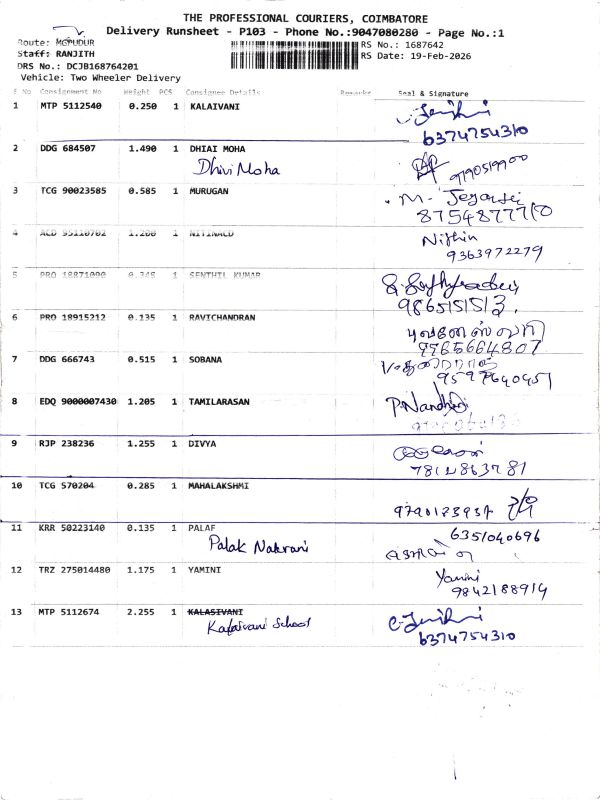 THE PROFESSIONAL COURIERS, COIMBATORE
Delivery Runsheet - P103 - Phone No.:9047080280 - Page No.:1
Route: MGPUDUR
RS No.: 1687642
Staff: RANJITH
RS Date: 19-Feb-2026
DRS No.: DCJB168764201
Vehicle: Two Wheeler Delivery
S No Consignment No Weight PCS Consignee Details Remarks Seal & Signature
1 MTP 5112540 0.250 1 KALAIVANI
6374754310
2 DDG 684507 1.490 1 DHIAI MOHA
Dhivi Moha 9790519900
3 TCG 90023585 0.585 1 MURUGAN M-
8754877710
4 ACD 95110702 1.200 1 NITINACD Nithin
9363972279
5 PRO 18871090 0.345 1 SENTHIL KUMAR
9865151513.
6 PRO 18915212 0.135 1 RAVICHANDRAN
9965664807
7 DDG 666743 0.515 1 SOBANA
9597640451
8 EDQ 9000007430 1.205 1 TAMILARASAN P.Nandhini
9 RJP 238236 1.255 1 DIVYA
7812863781
10 TCG 570204 0.285 1 MAHALAKSHMI
11 KRR 50223140 0.135 1 PALAF 6351040696
Palak Nakrani
12 TRZ 275014480 1.175 1 YAMINI Yamini
9842188914
13 MTP 5112674 2.255 1 KALASIVANI
Kalaivani School
6374754310